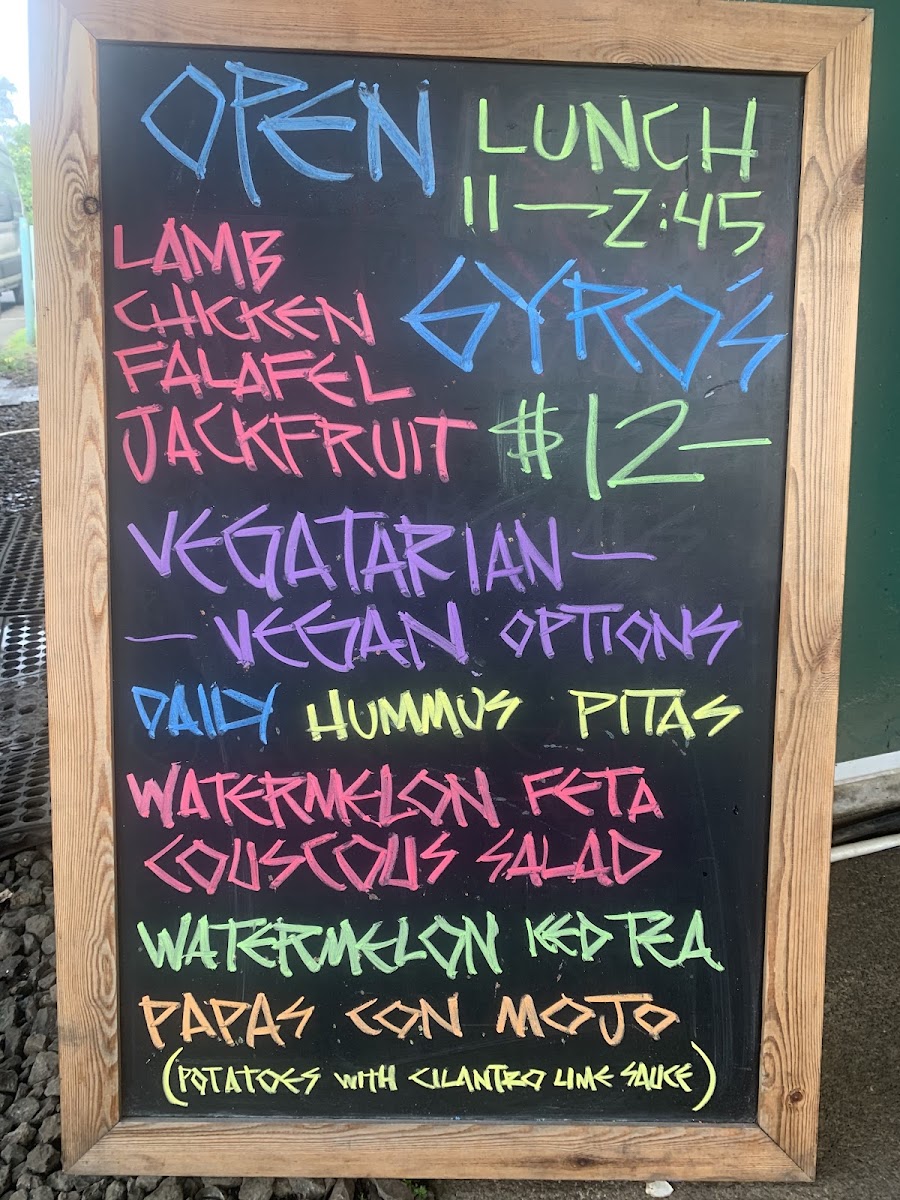 OPEN LUNCH
11→2:45
LAMB
CHICKEN
FALAFEL
JACKFRUIT
GYRO'S
$12—
VEGATARIAN—
—VEGAN OPTIONS
DAILY HUMMUS PITAS
WATERMELON FETA
COUSCOUS SALAD
WATERMELON ICED TEA
PAPAS CON MOJO
(POTATOES WITH CILANTRO LIME SAUCE)